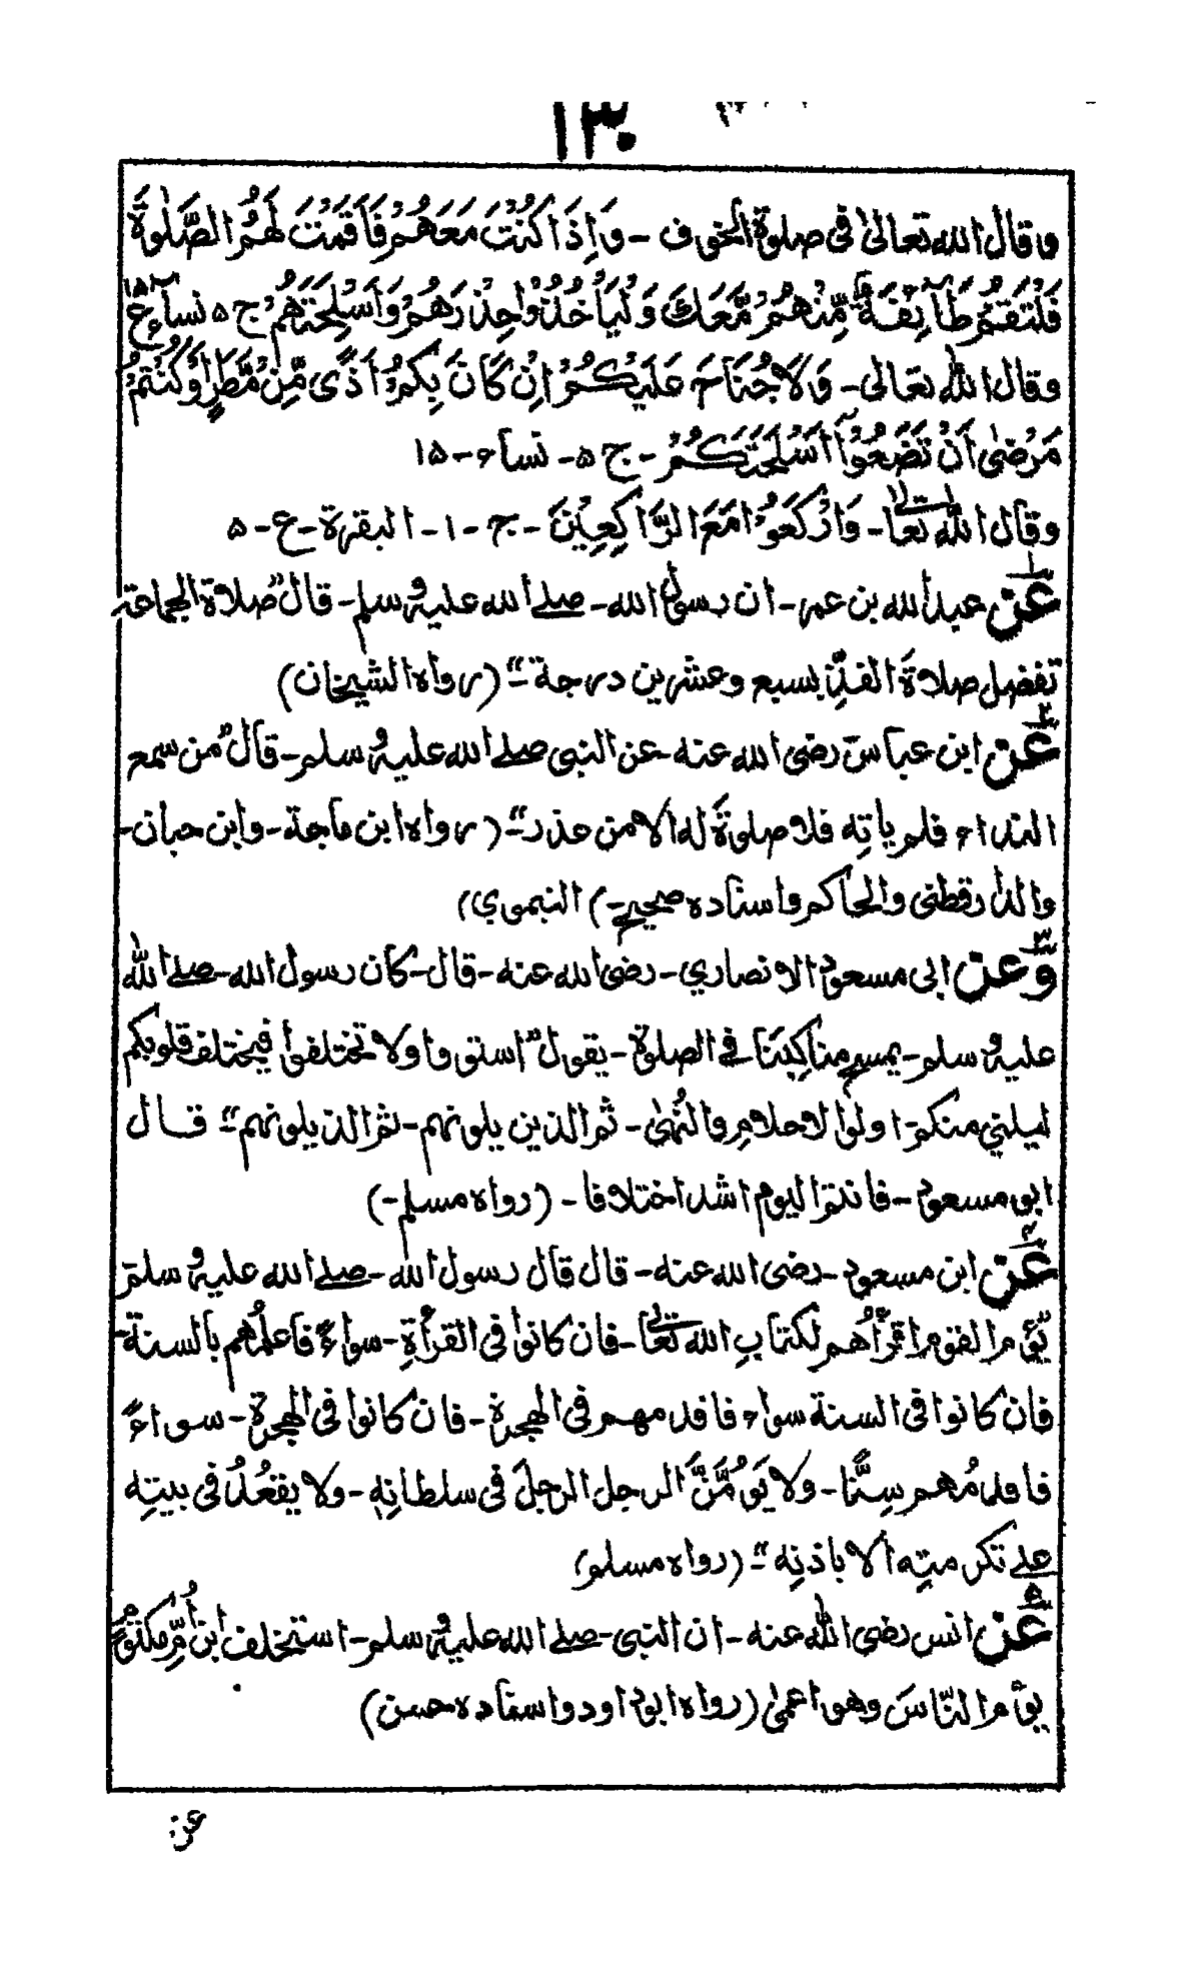 ١٣٠
وقال الله تعالىٰ فى صلوة الخوف - وَاِذَا كُنْتَ مَعَهُمْ فَاَقَمْتَ لَهُمُ الصَّلٰوةَ
فَلْتَقُمْ طَآئِفَةٌ مِّنْهُمْ مَّعَكَ وَلْيَأْخُذُوْا حِذْرَهُمْ وَاَسْلِحَتَهُمْ ج ۵ نساء ع ۱۵
وقال الله تعالى - وَلَا جُنَاحَ عَلَيْكُمْ اِنْ كَانَ بِكُمْ اَذًى مِّنْ مَّطَرٍ اَوْ كُنْتُمْ
مَرْضٰى اَنْ تَضَعُوْآ اَسْلِحَتَكُمْ - ج ۵ - نساء - ۱۵
وقال الله تعالىٰ - وَارْكَعُوْا مَعَ الرَّاكِعِيْنَ - ج - ۱ - البقرة - ع - ۵
۱ عن عبدالله بن عمر - ان رسول الله - صلے الله عليه وسلم - قال "صلاة الجماعة
تفضل صلاةَ الفذِّ بسبع وعشرين درجة" - (رواه الشيخان)
۲ عن ابن عباس رضى الله عنه - عن النبى صلے الله عليه وسلم - قال "من سمع
النداء فلم ياتِه فلا صلوةَ له الا من عذر" - (رواه ابن ماجة - وابن حبان -
والدارقطنى والحاكم واسناده صحيح -) النيموي)
۳ وعن ابى مسعود الانصاري - رضى الله عنه - قال - كان رسول الله - صلے الله
عليه وسلم - يمسح مناكِبَنا فے الصلوة - يقول "استووا ولا تختلفوا فيختلف قلوبكم
ليلني منكم - اولوا الاحلامِ والنُّهىٰ - ثم الذين يلونهم - ثم الذين يلونهم" - قال
ابو مسعود - فانتم اليوم اشد اختلافا - (رواه مسلم -)
۴ عن ابن مسعود - رضى الله عنه - قال قال رسول الله - صلے الله عليه وسلم
يؤم القوم اقرأُهم لكتابِ الله تعالىٰ - فان كانوا فى القرأةِ - سواءً فاعلمُهم بالسنة -
فان كانوا فى السنة سواء فاقدمهم فى الهجرة - فان كانوا فى الهجرة - سواءً
فاقدمُهم سِنًّا - ولا يَؤُمَّنَّ الرجل الرجلَ فى سلطانِهٖ - ولا يقعُدُ فى بيتِه
علے تكرمتِه الا باذنِه" - (رواه مسلم)
۵ عن انس رضى الله عنه - ان النبى - صلے الله عليه وسلم - استخلف ابنَ اُمِّ مكتومٍ
يؤم النّاسَ وهو اعمىٰ (رواه ابوداود واسناده حسن)
عن